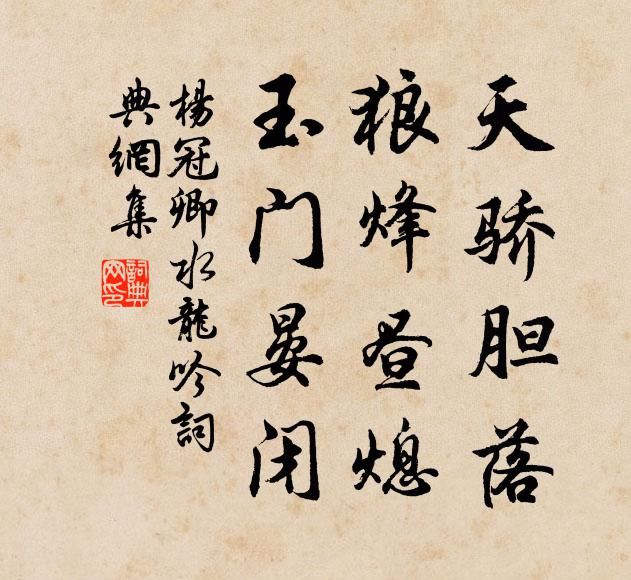 天骄胆落
狼烽昼熄
玉门晏闭
楊冠卿水龍吟詞
典網集
詞典
网印